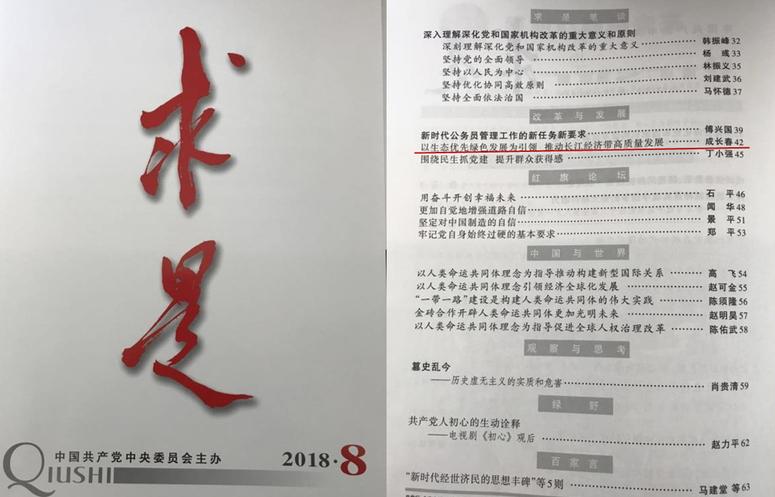 求是
中国共产党中央委员会主办
QIUSHI
2018·8
求是笔谈
深入理解深化党和国家机构改革的重大意义和原则
深刻理解深化党和国家机构改革的重大意义 韩振峰 32
坚持党的全面领导 杨彧 33
坚持以人民为中心 林振义 35
坚持优化协同高效原则 刘建武 36
坚持全面依法治国 马怀德 37
改革与发展
新时代公务员管理工作的新任务新要求 傅兴国 39
以生态优先绿色发展为引领 推动长江经济带高质量发展 成长春 42
围绕民生抓党建 提升群众获得感 丁小强 45
红旗论坛
用奋斗开创幸福未来 石平 46
更加自觉地增强道路自信 闻华 48
坚定对中国制造的自信 景平 51
牢记党自身始终过硬的基本要求 郑平 53
中国与世界
以人类命运共同体理念为指导推动构建新型国际关系 高飞 54
以人类命运共同体理念引领经济全球化发展 赵可金 55
“一带一路”建设是构建人类命运共同体的伟大实践 陈须隆 56
金砖合作开辟人类命运共同体更加光明未来 赵明昊 57
以人类命运共同体理念为指导促进全球人权治理改革 陈佑武 58
观察与思考
篡史乱今
——历史虚无主义的实质和危害 肖贵清 59
绿野
共产党人初心的生动诠释
——电视剧《初心》观后 赵力平 62
百家言
“新时代经世济民的思想丰碑”等5则 马建堂 等 63